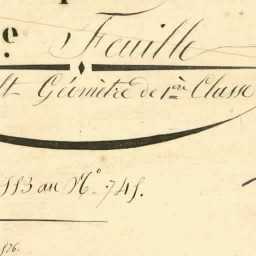 e Feuille
lt Géomètre de 1ère Classe
553 au N° 745.